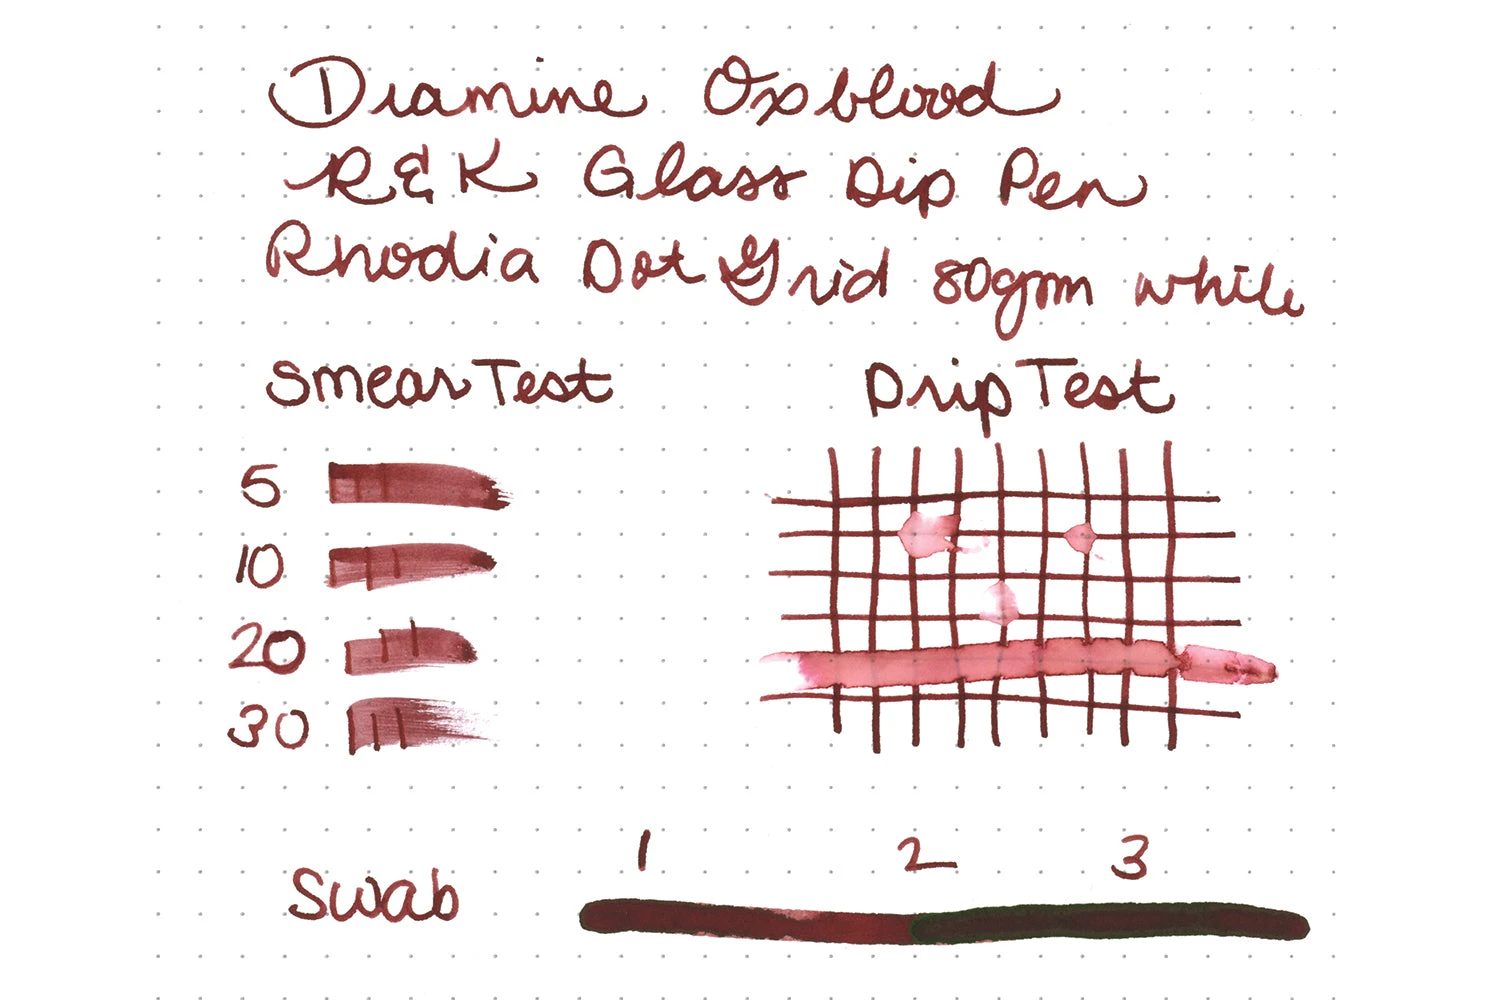 Diamine Oxblood
R&K Glass Dip Pen
Rhodia Dot Grid 80gsm white
Smear Test
Drip Test
5
10
20
30
1 2 3
Swab